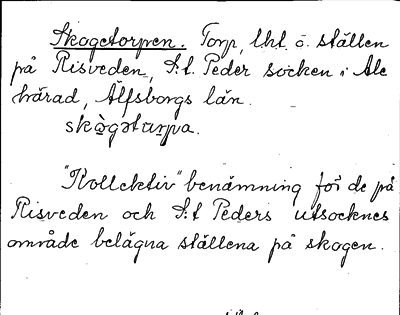 Skogetorpen. Torp, lht. o. ställen
på Risveden, S:t. Peder socken i Ale
härad, Älfsborgs län.
skògətar̥pa.
"Kollektiv" benämning för de på
Risveden och S:t Peders utsocknes
område belägna ställena på skogen.